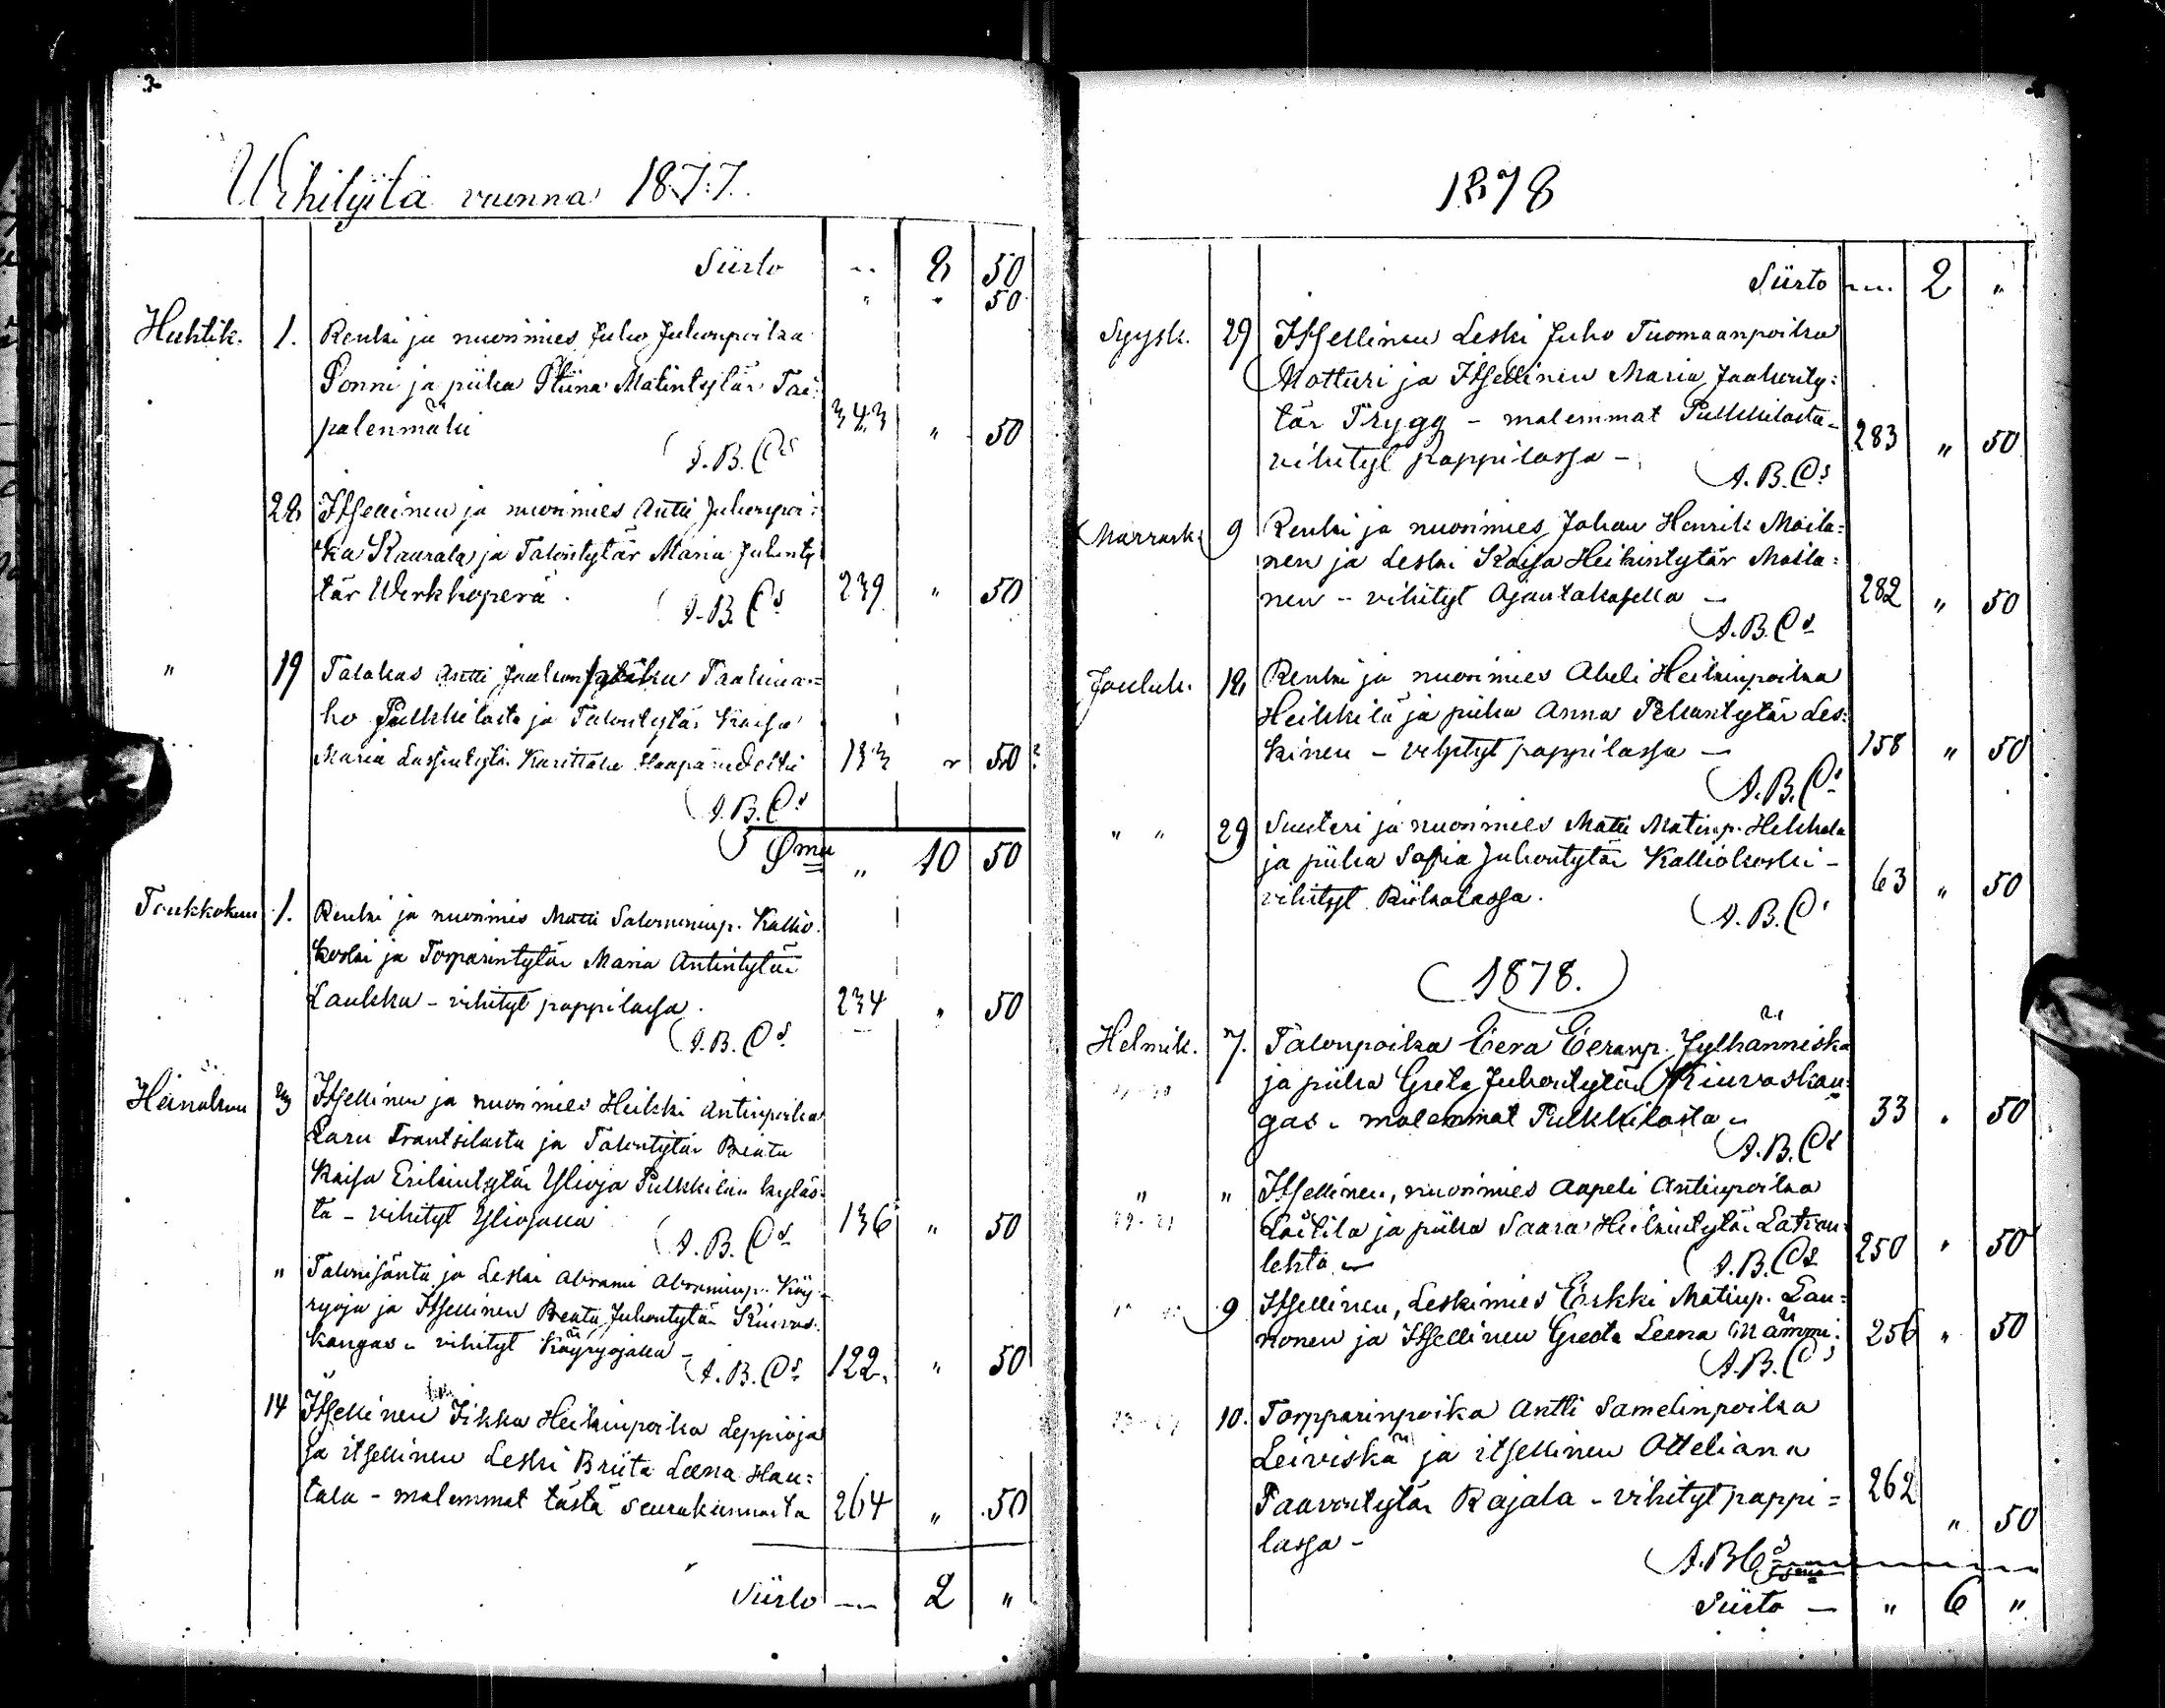 Wihityitä vuonna 1877.
Siirto " 8 50
" " 50
Huhtik. 1. Renki ja nuorimies Juho Juhonpoika
Ponni ja piika Stiina Matintytär Tai-
palenmäki 343 " 50
A.B.Cs
28 Itsellinen ja nuorimies Antti Juhonpoi=
ka Kaurala ja Talontytär Maria Juhonty
tär Werkkoperä. 239 " 50
A.B.Cs
" 19 Talokas Antti Jaakonpoika
ho Pulkkilasta ja Talontytär Kaisa
Maria Lassintytär Karittalu 133 " 50
A.B.Cs
Sma " 10 50
Toukokuu 1. Renki ja nuorimies Matti Salomoninp. Kallio
koski ja Torparintytär Maria Antintytär
Laukka - vihityt pappilassa. 234 " 50
A.B.Cs
Heinäkuu 3 Itsellinen ja nuorimies Heikki Antinpoika
Saru Frantsilasta ja Talontytär Briita
Kaisa Erikintytär Ylioja Pulkkilan kyläs=
tä - vihityt Yliojalla 136 " 50
A.B.Cs
" Talonisäntä ja Leski Abrami Abraminp. Käy-
ryoja ja Itsellinen Beata Juhontytär Kiuvas-
kangas - vihityt Käyryojalla - 122. " 50
A.B.Cs
14 Itsellinen Iikka Heikinpoika Leppioja
ja itsellinen Leski Briita Leena Hau=
tala - molemmat tästä seurakunnasta 264 " 50
Siirto — 2 "
1878
Siirto — 2 "
Syysk. 29 Itsellinen Leski Juho Tuomaanpoika
Motturi ja Itsellinen Maria Jaakonty=
tär Trygg - molemmat Pulkkilasta -
vihityt pappilassa - 283 " 50
A.B.Cs
Marrask. 9 Renki ja nuorimies Johan Henrik Moila=
nen ja Leski Kaisa Heikintytär Moila=
nen - vihityt Ojantakasella - 282 " 50
A.B.Cs
Jouluk. 18 Renki ja nuorimies Abeli Heikinpoika
Heikkilä ja piika Anna Pekantytär Les=
kinen - vihityt pappilassa - 158 " 50
A.B.Cs
" " 29 Suutari ja nuorimies Matti Matinp. Hekkala
ja piika Sofia Juhontytär Kalliokoski -
vihityt Riikolassa. 63 " 50
A.B.Cs
(1878.)
Helmik. 7. Talonpoika Eera Eeranp. Jylhänniska
ja piika Greta Juhontytär Kiuvaskan=
gas - molemmat Pulkkilasta - 33 " 50
A.B.Cs
" " Itsellinen, nuorimies Aapeli Antinpoika
Laitila ja piika Saara Heikintytär Latvan=
lehto - 250 " 50
A.B.Cs
9 Itsellinen, Leskimies Erkki Matinp. Lau=
nonen ja Itsellinen Greeta Leena Nämmi. 256 " 50
A.B.Cs
10. Torpparinpoika Antti Samelinpoika
Leiviskä ja itsellinen Otteliana
Paavontytär Rajala - vihityt pappi= 262 " 50
lassa -
A.B.Cs
Siirto — " 6 "